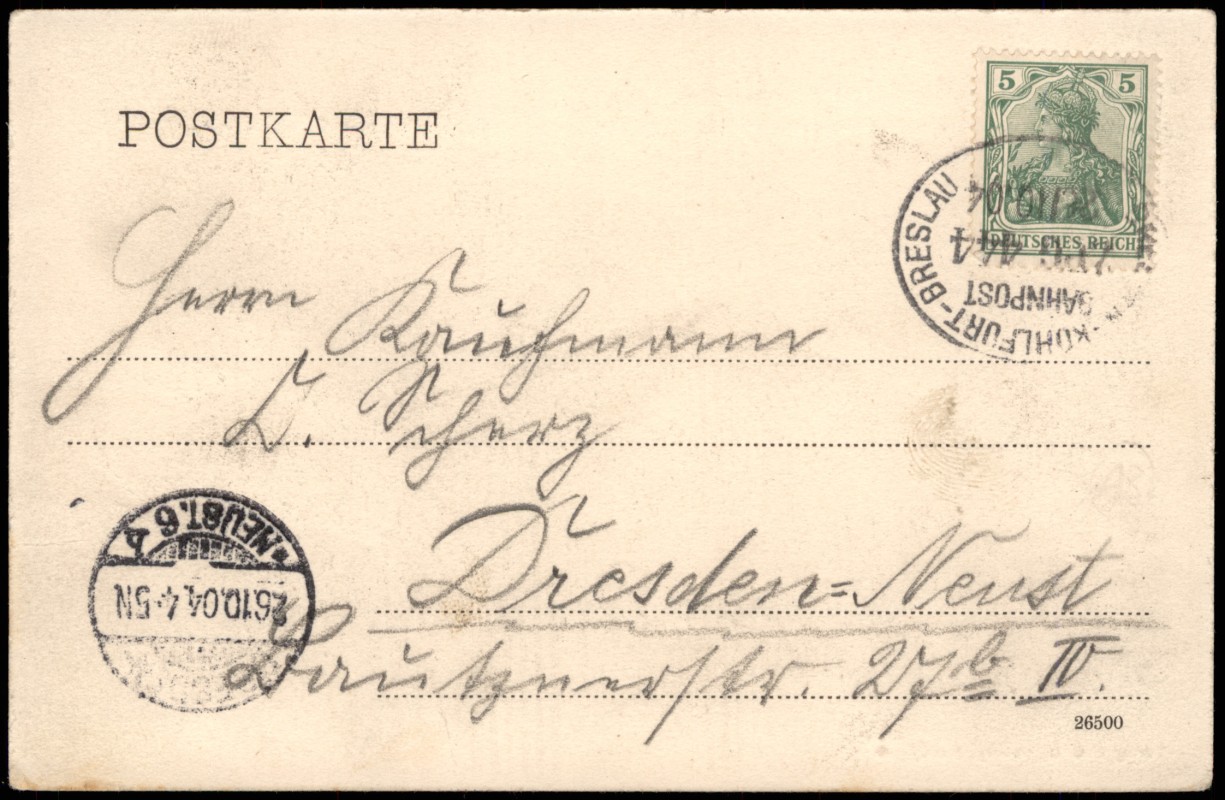 POSTKARTE
5 5
DEUTSCHES REICH
KOHLFURT-BRESLAU
BAHNPOST
ZUG 444
10 04
Herrn Kaufmann
L. Scherz
Dresden=Neust
Bautznerstr. 27b IV.
*NEUST. 6
26.10.04. 4-5N
26500